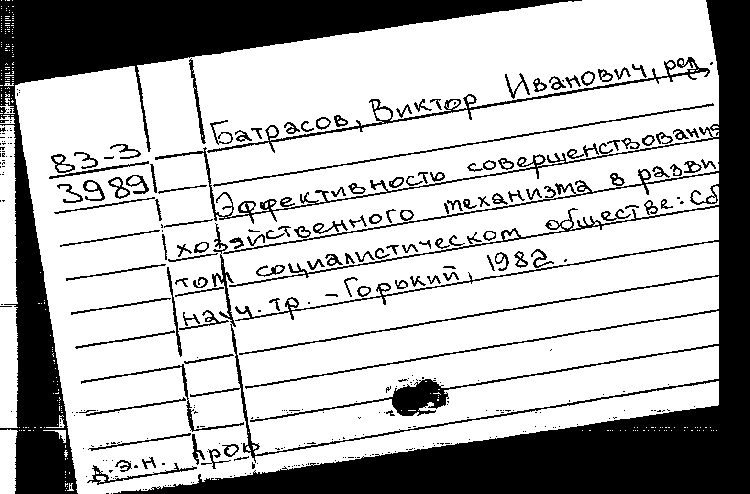 Батрасов, Виктор Иванович, ред.
83-3
3989
Эффективность совершенствования
хозяйственного механизма в разви-
том социалистическом обществе: Сб
науч. тр. - Горький, 1982.
д.э.н., проф